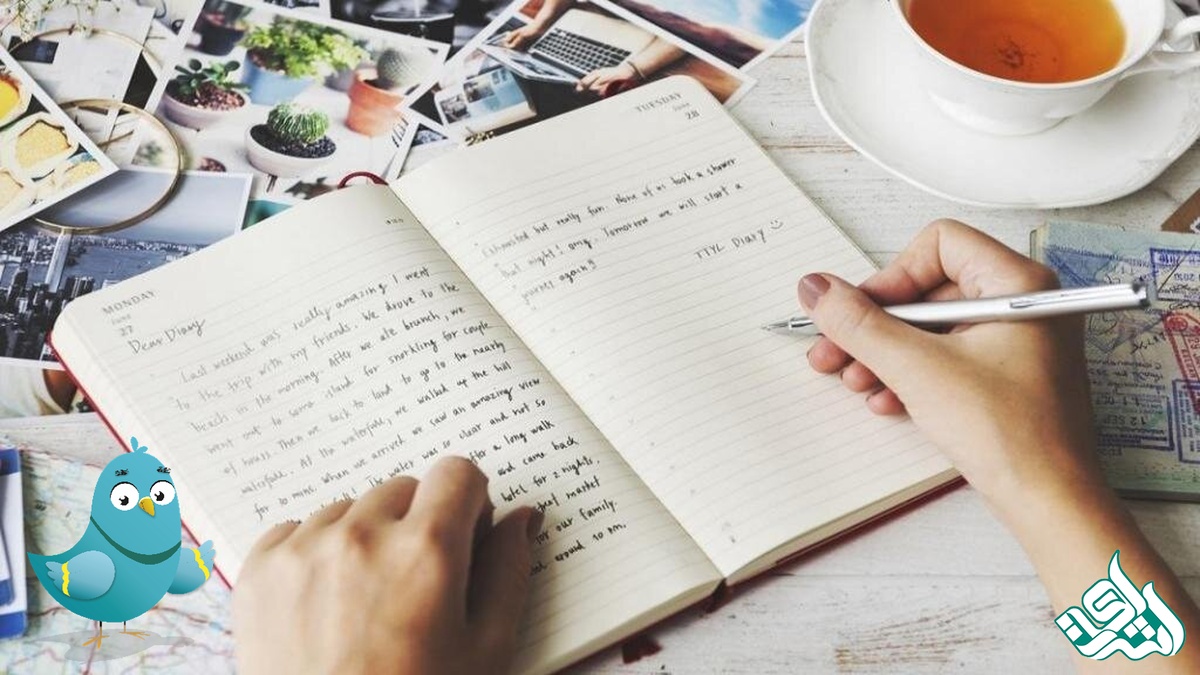 MONDAY
June
27
Dear Diary
Last weekend was really amazing I went
to the trip with my friends. We drove to the
beach in the morning. After we ate brunch, we
went out to some island for snorkling for couple
of hours. Then we back to land to go to the nearby
waterfall. At the waterfall, we walked up the hill
for 30 mins. When we arrived we saw an amazing view
The water was so clear and not so
after a long walk
and came back
hotel for 2 nights.
street market
for our family.
around 10 pm.
TUESDAY
June
28
Exhausted but really fun. None of us took a shower
that night! omg. Tomorrow we will start a
journey again!!
TTYL Diary
12 SEP